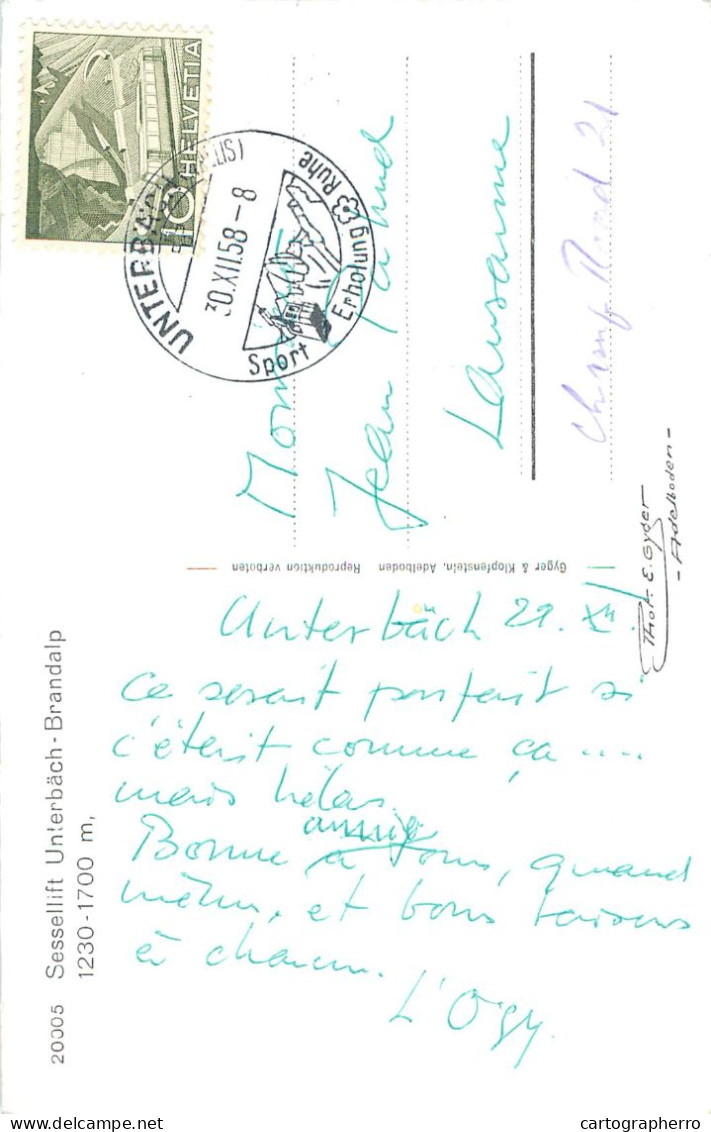 HELVETIA
10
UNTERBÄCH
30.XII.58-8
Sport Erholung Ruhe
Monsieur
Jean
Lausanne
21
Gyger & Klopfenstein, Adelboden Reproduktion verboten
Phot. E. Gyger
- Adelboden -
20005 Sessellift Unterbäch-Brandalp
1230-1700 m,
Unterbäch 29. XII
Ce serait parfait si
c'était comme ça ....
mais hélas.
Bonne année à tous, quand
même, et bons baisers
à chacun.
L'Ogy.
delcampe.net
cartographerro